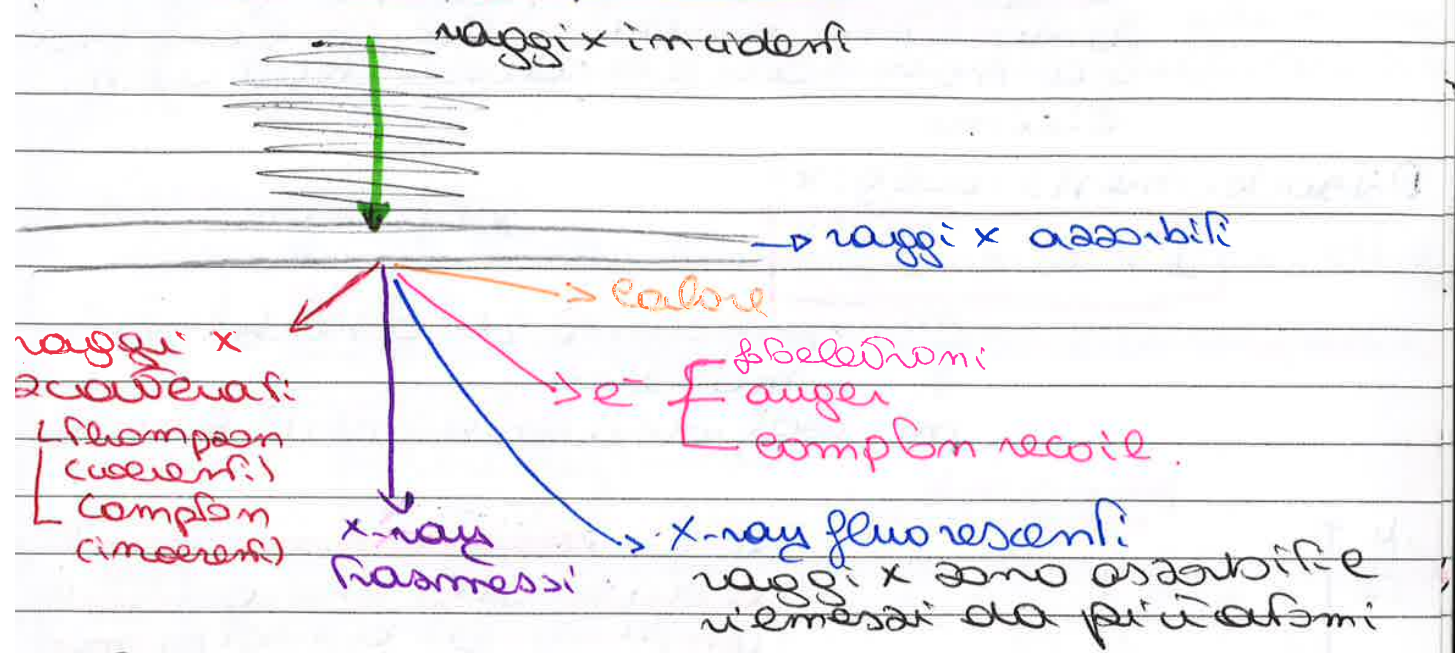 raggi x incidenti
→ raggi x assorbiti
→ calore
raggi x
scatterati:
thompson
(coerenti)
compton
(incoerenti)
→ e⁻
auger
compton recoil.
x-ray
trasmessi
x-ray fluorescenti
raggi x sono assorbiti e
riemessi da più atomi